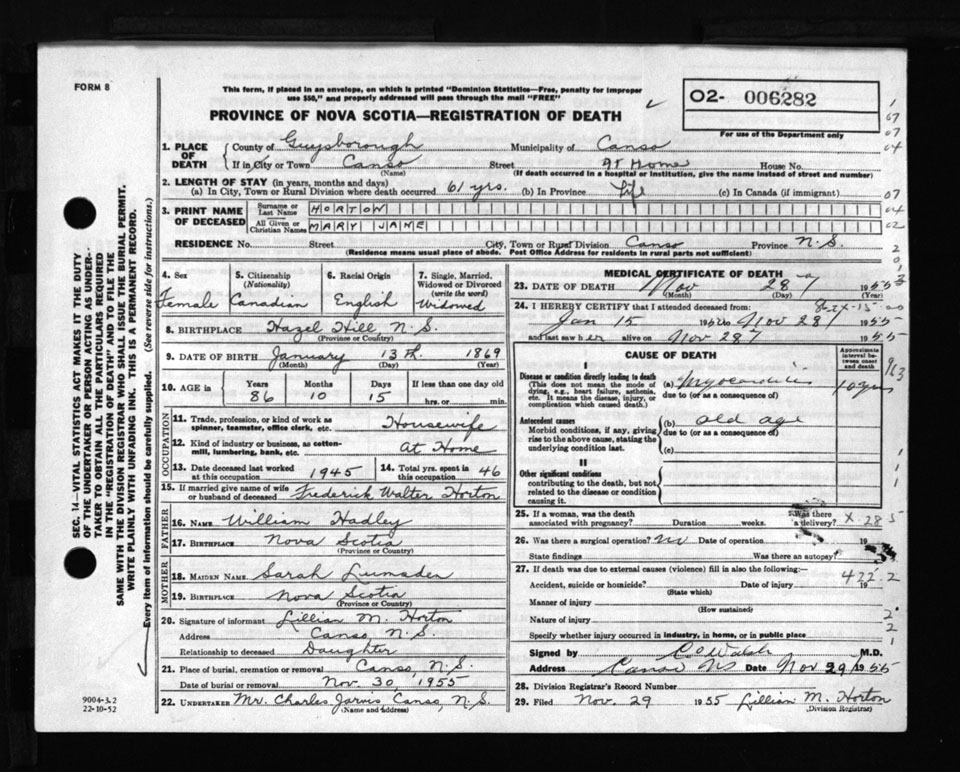 FORM 8
This form, if placed in an envelope, on which is printed "Dominion Statistics—Free, penalty for improper
use $50," and properly addressed will pass through the mail "FREE"
PROVINCE OF NOVA SCOTIA—REGISTRATION OF DEATH
O2- 006282
For use of the Department only
SEC. 14—VITAL STATISTICS ACT MAKES IT THE DUTY
OF THE UNDERTAKER OR PERSON ACTING AS UNDER-
TAKER TO OBTAIN ALL THE PARTICULARS REQUIRED
IN THE "REGISTRATION OF DEATH" AND TO FILE THE
SAME WITH THE DIVISION REGISTRAR WHO SHALL ISSUE THE BURIAL PERMIT.
WRITE PLAINLY WITH UNFADING INK. THIS IS A PERMANENT RECORD.
Every item of information should be carefully supplied. (See reverse side for instructions.)
1. PLACE OF DEATH
County of Guysborough Municipality of Canso
If in City or Town Canso Street at Home House No.
(Name) (If death occurred in a hospital or institution, give the name instead of street and number)
2. LENGTH OF STAY (in years, months and days)
(a) In City, Town or Rural Division where death occurred 61 yrs. (b) In Province Life (c) In Canada (if immigrant)
3. PRINT NAME OF DECEASED
Surname or Last Name HORTON
All Given or Christian Names MARY JANE
RESIDENCE No. Street City, Town or Rural Division Canso Province N.S.
(Residence means usual place of abode. Post Office Address for residents in rural parts not sufficient)
4. Sex
Female
5. Citizenship
(Nationality)
Canadian
6. Racial Origin
English
7. Single, Married, Widowed or Divorced
(write the word)
Widowed
8. BIRTHPLACE Hazel Hill N.S.
(Province or Country)
9. DATE OF BIRTH January 13th 1869
(Month) (Day) (Year)
10. AGE in
Years Months Days If less than one day old
86 10 15 hrs. or min.
OCCUPATION
11. Trade, profession, or kind of work as
spinner, teamster, office clerk, etc. Housewife
12. Kind of industry or business, as cotton-
mill, lumbering, bank, etc. At Home
13. Date deceased last worked
at this occupation 1945
14. Total yrs. spent in
this occupation 46
15. If married give name of wife
or husband of deceased Frederick Walter Horton
FATHER
16. NAME William Hadley
17. BIRTHPLACE Nova Scotia
(Province or Country)
MOTHER
18. MAIDEN NAME Sarah Lumsden
19. BIRTHPLACE Nova Scotia
(Province or Country)
20. Signature of informant Lillian M. Horton
Address Canso, N.S.
Relationship to deceased Daughter
21. Place of burial, cremation or removal Canso, N.S.
Date of burial or removal Nov. 30, 1955
22. UNDERTAKER Mr. Charles Jarvis Canso, N.S.
(Name and address)
MEDICAL CERTIFICATE OF DEATH
23. DATE OF DEATH Nov 28 1955
(Month) (Day) (Year)
24. I HEREBY CERTIFY that I attended deceased from:
Jan 15 1955 to Nov 28 1955
and last saw her alive on Nov 28 1955
CAUSE OF DEATH
Approximate interval between onset and death
I
Disease or condition directly leading to death
(This does not mean the mode of
dying, e.g., heart failure, asthenia,
etc. It means the disease, injury, or
complication which caused death.)
(a) Myocarditis 10 yrs
due to (or as a consequence of)
Antecedent causes
Morbid conditions, if any, giving
rise to the above cause, stating the
underlying condition last.
(b) old age
due to (or as a consequence of)
(c)
II
Other significant conditions
contributing to the death, but not
related to the disease or condition
causing it.
25. If a woman, was the death
associated with pregnancy? Duration weeks. Was there a delivery? X-285
26. Was there a surgical operation? no Date of operation 19
State findings Was there an autopsy?
27. If death was due to external causes (violence) fill in also the following:
422.2
Accident, suicide or homicide? Date of injury 19
(State which)
Manner of injury
(How sustained)
Nature of injury
Specify whether injury occurred in industry, in home, or in public place
Signed by C O Walsh M.D.
Address Canso NS Date Nov 29 1955
28. Division Registrar's Record Number
29. Filed Nov. 29 1955 Lillian M. Horton
(Division Registrar)
9004-3.2
22-10-52